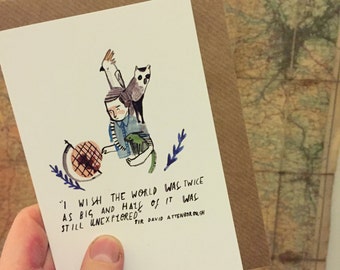 "I WISH THE WORLD WAS TWICE
AS BIG AND HALF OF IT WAS
STILL UNEXPLORED"
SIR DAVID ATTENBOROUGH